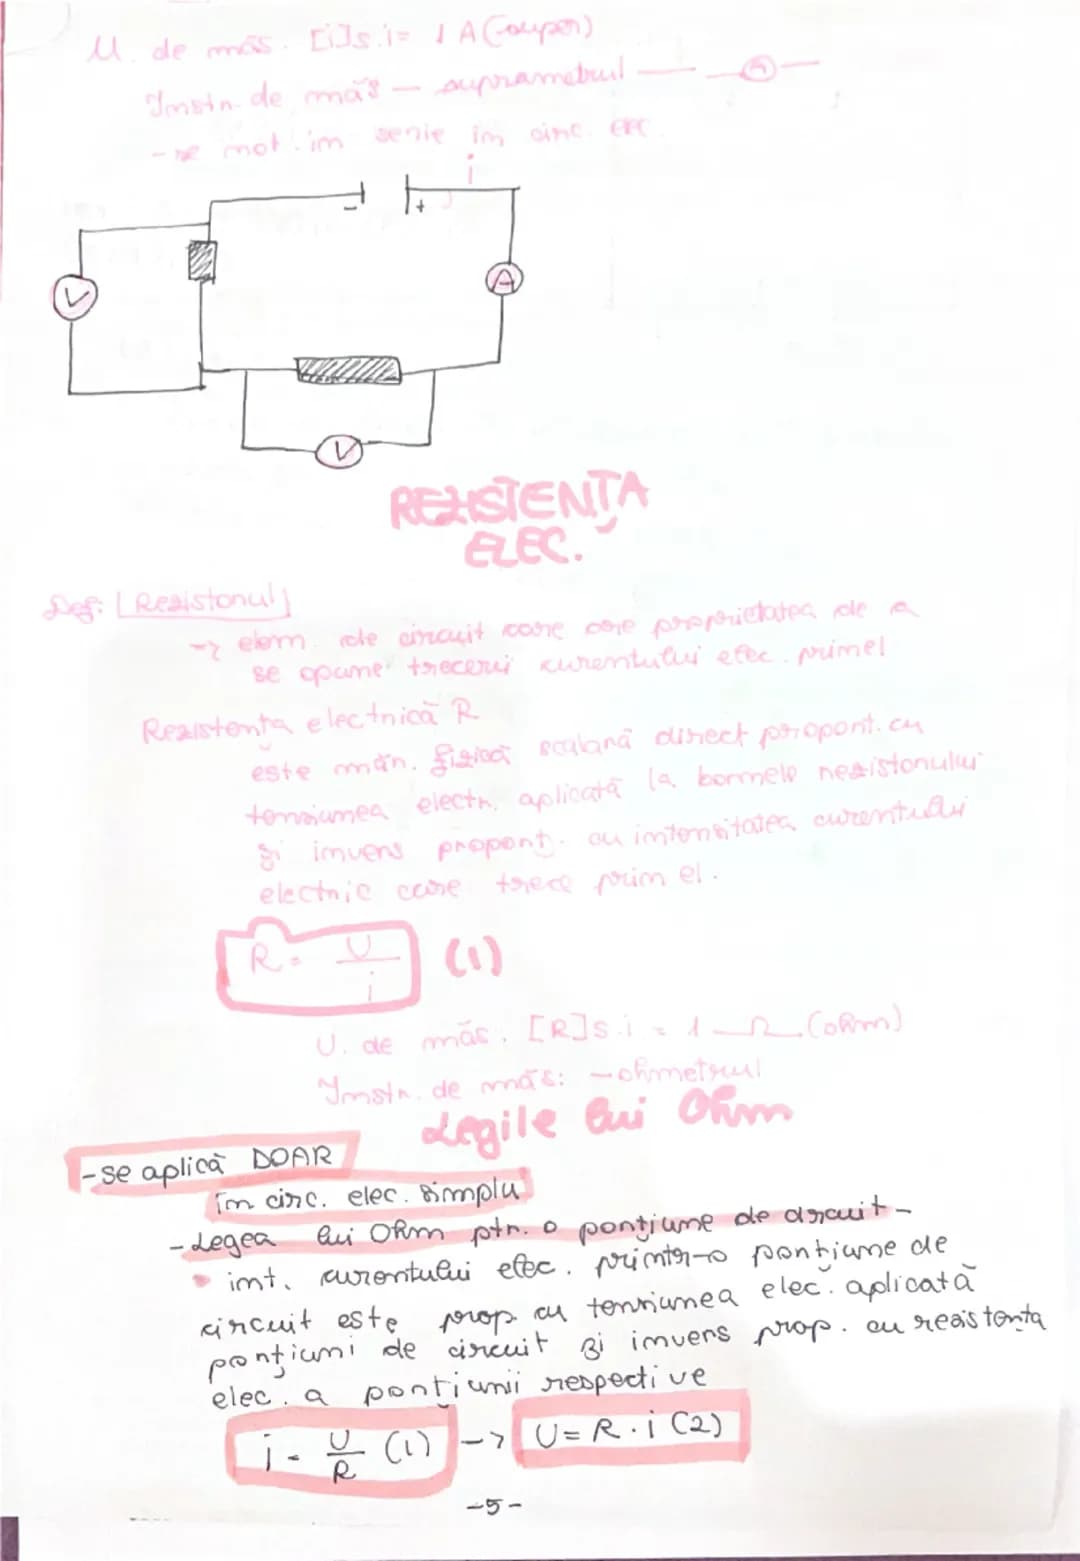 U. de măs. [i]s.i = 1 A (amper)
Instr. de măs — ampermetrul — A —
- se mot. în serie în circ. elec.
i
- +
V
A
V
REZISTENȚA
ELEC.
Def: [Rezistorul]
-> elem. de circuit care are proprietatea de a
se opune trecerii curentului elec. prin el
Rezistența electrică R
este măr. fizică scalară direct proporț. cu
tensiunea electr. aplicată la bornele rezistorului
și invers proporț. cu intensitatea curentului
electric care trece prin el.
R = U/i (1)
U. de măs. [R]s.i = 1 Ω (ohm)
Instr. de măs: - ohmetrul
Legile lui Ohm
- se aplică DOAR
în circ. elec. simplu
- Legea lui Ohm ptr. o porțiune de circuit -
• int. curentului elec. printr-o porțiune de
circuit este prop. cu tensiunea elec. aplicată
porțiuni de circuit și invers prop. cu rezistența
elec. a porțiunii respective
i = U/R (1) -> U = R · i (2)
-5-